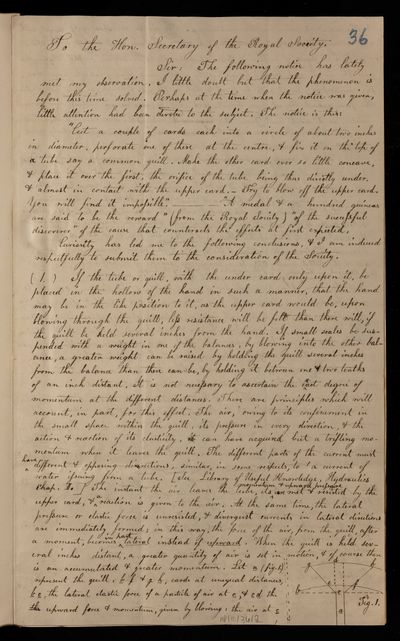 36
To the Hon. Secretary of the Royal Society.
Sir. The following notice has lately
met my observation. I little doubt but that the phenomenon is
before this time solved. Perhaps at the time when the notice was given,
little attention had been devoted to the subject. The notice is this:
"Cut a couple of cards each into a circle of about two inches
in diameter, perforate one of these at the centre, & fix it on the top of
a tube say a common quill. Make the other card ever so little concave,
& place it over the first, the orifice of the tube being thus directly under,
& almost in contact with the upper card. – Try to blow off the upper card.
You will find it impossible." "A medal & a hundred guineas
are said to be the reward" (from the Royal Society) "of the successful
discoverer" of the cause that counteracts the effects at first expected.
Curiosity has led me to the following conclusions, & I am induced
respectfully to submit them to the consideration of the Society.
(1.) If the tube or quill, with the under card only upon it, be
placed in the hollow of the hand in such a manner, that the hand
may be in the like position to it, as the upper card would be, upon
blowing through the quill, less resistance will be felt than there will, if
the quill be held several inches from the hand. If small scales be sus-
pended with a weight in one of the balances, by blowing into the other bal-
ance, a greater weight can be raised by holding the quill several inches
from the balance than there can be, by holding it between one & two tenths
of an inch distant. It is not necessary to ascertain the exact degree of
momentum at the different distances. There are principles which will
account, in part, for this effect. The air, owing to its confinement in
the small space within the quill, its pressure in every direction, & the
action & reaction of its elasticity, can have acquired but a trifling mo-
mentum when it leaves the quill. The different parts of the current must
have different & opposing directions, similar, in some respects, to a current of
water issuing from a tube. [See Library of Useful Knowledge, Hydraulics
chap. ] The instant the air leaves the tube, its progression & upward pressure are not resisted by the
upper card, & reaction is given to the air. At the same time, the lateral
pressure or elastic force is unresisted, & divergent currents in lateral directions
are immediately formed; in this way, the force of the air, from the quill, after
a moment, becomes in part lateral instead of upward. When the quill is held sev-
eral inches distant, a greater quantity of air is set in motion, & of course there
is an accumulated & greater momentum. Let a (fig. 1)
represent the quill; b f & g h, cards at unequal distances,
b c, the lateral elastic force of a particle of air at c, & c d the
the upward force & momentum, given by blowing: the air at c
Fig. 1.